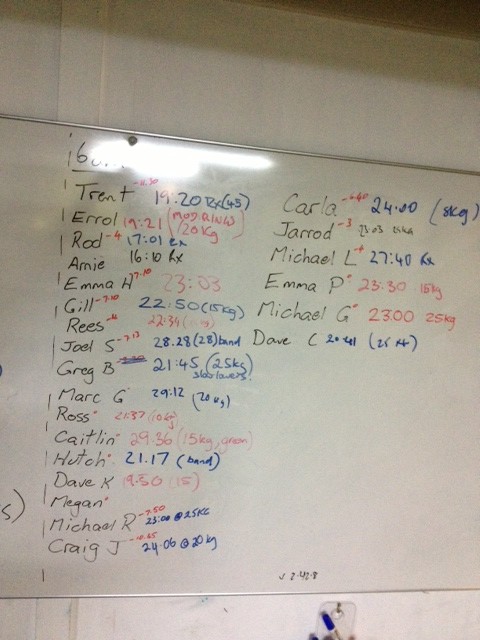 Trent 19:20 Rx (45)
Errol 19:21 20kg
Rod -4 17:01 Rx
Arnie 16:10 Rx
Emma H 23:03
Gill -7.10 22:50 (15kg)
Rees 22:34
Joel S -7.13 28.28 (28) band
Greg B 21:45 (25kg)
Marc G 29:12 (20kg)
Ross 21:37 (10kg)
Caitlin 29.36 (15kg, green)
Hutch 21.17 (band)
Dave K 19:50 (15)
Megan
Michael R -7.50 23:00 @ 25kg
Craig J 24.06 @ 20kg
Carla 24:00 (8kg)
Jarrod -3 23:03
Michael L 27:40 Rx
Emma P 23:30 15kg
Michael G 23.00 25kg
Dave C